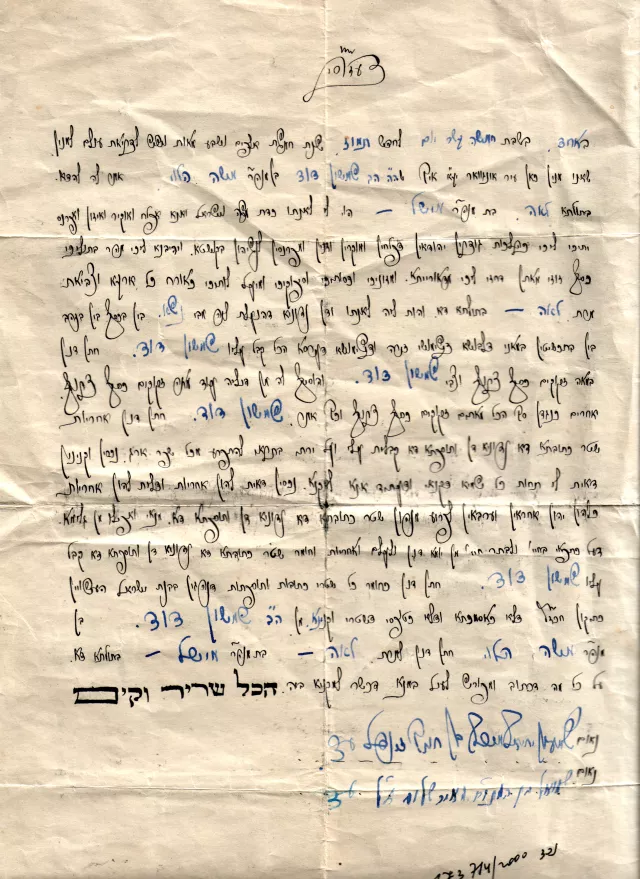 באחד בשבת חמשה עשר יום לחדש תמוז שנת חמשת אלפים ושבע מאות לבריאת עולם למנין
שאנו מנין כאן עיר איך הב׳ שמשון דוד משה הלוי אמר לה להדא
בתולתא לאה בת אנשל — הוי לי לאנתו כדת משה וישראל ואנא אפלח ואוקיר ואיזון ואפרנס
יתיכי ליכי כהלכות גוברין יהודאין דפלחין ומוקרין וזנין ומפרנסין לנשיהון בקושטא ויהיבנא ליכי מהר בתוליכי
כסף זוזי מאתן דחזי ליכי מדאורייתא ומזוניכי וכסותיכי וסיפוקיכי ומיעל לותיכי כאורח כל ארעא וצביאת
מרת לאה — בתולתא דא והות ליה לאנתו ודין נדוניא דהנעלת ליה מבי בין בכסף בין בזהב
בין בתכשיטין במאני דלבושא בשימושי דירה ובשימושא דערסא הכל קבל עליו שמשון דוד חתן דנן
במאה זקוקים כסף צרוף וצבי שמשון דוד והוסיף לה מן דיליה עוד מאה זקוקים כסף צרוף
אחרים כנגדן סך הכל מאתים זקוקים כסף צרוף וכך אמר שמשון דוד חתן דנן אחריות
שטר כתובתא דא נדוניא דן ותוספתא דא קבלית עלי ועל ירתי בתראי להתפרע מכל שפר ארג נכסין וקנינין
דאית לי תחות כל שמיא דקנאי ודעתיד אנא למקנא נכסין דאית להון אחריות ודלית להון אחריות
כלהון יהון אחראין וערבאין לפרוע מנהון שטר כתובתא דא נדוניא דן ותוספתא דא מנאי ואפילו מן גלימא
דעל כתפאי בחיי ולבתר חיי מן יומא דנן ולעלם ואחריות וחומר שטר כתובתא דא נדוניא דן ותוספתא דא קבל
עליו שמשון דוד חתן דנן כחומר כל שטרי כתובות ותוספתות דנהגין בבנת ישראל העשויין
כתקון חכז״ל דלא כאסמכתא ודלא כטופסי דשטרי וקנינא מן הב׳ שמשון דוד בן
משה הלוי חתן דנן למרת לאה — בת אנשל — בתולתא דא
על כל מה דכתוב ומפורש לעיל במנא דכשר למקניא ביה הכל שריר וקים
נאום בן עד
נאום בן שלום עד
7/4/2000